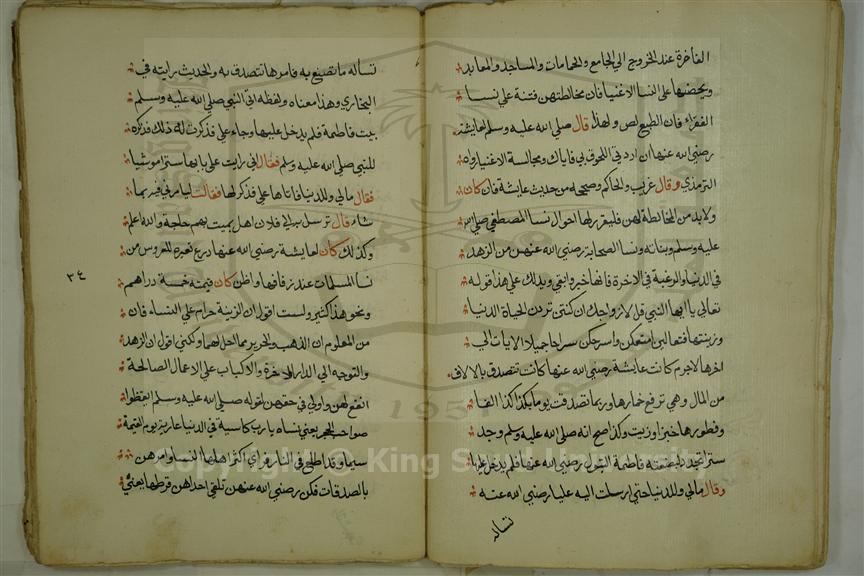 الفاخرة عند الخروج الي الجامع والحمامات والمساجد والمعابد
ويحضها على النسا الاغنيا فان مخالطتهن فتنة علي نسا
الفقراء فان الطبع لص ولهذا قال صلي الله عليه وسلم لعايشة
رضي الله عنها ان اردتي اللحوق بي فاياك ومجالسة الاغنيا رواه
الترمذي وقال غريب والحاكم وصححه من حديث عايشة فان كان
ولابد من المخالطة لهن فليقرر لها احوال نسا المصطفي صلي الله
عليه وسلم وبناته ونسا الصحابة رضي الله عنهن من الزهد
في الدنيا والرغبة في الاخرة فانها خير وابقي ويدلك علي هذا قوله
تعالي يا ايها النبي قل لازواجك ان كنتن تردن الحياة الدنيا
وزينتها فتعالين امتعكن واسرحكن سراحا جميلا الايات الي
اخرها لاجرم كانت عايشة رضي الله عنها كانت تتصدق بالالاف
من المال وهي ترقع خمارها وربما تصدقت يوما بكذا كذا الفا
وفطورها خبز وزيت وكذا صح انه صلي الله عليه وسلم وجد
سترا جديدا بضعته فاطمة البتول رضي الله عنها فلم يدخل عليها
وقال مالي وللدنيا حتي ارسلت اليه عليا رضي الله عنه
تساله
تساله ما تصنع به فامرها تتصدق به والحديث رايته في
البخاري وهذا معناه ولفظه اتي النبي صلي الله عليه وسلم
بيت فاطمة فلم يدخل عليها وجاء علي فذكرت له ذلك فذكره
للنبي صلي الله عليه وسلم فقال اني رايت علي بابها سترا موشيا
فقال مالي وللدنيا فاتاها علي فذكر لها فقالت ليامرني فيه بما
شاء قال ترسل به الي فلان اهل بيت بهم حاجة والله اعلم
وكذلك كان لعايشة رضي الله عنها درع تعيره للعروس من
نسا المسلمات عند زفافها واظن كان قيمته خمسة دراهم
٣٤
ونحو هذا كثير ولست اقول ان الزينة حرام علي النساء فان
من المعلوم ان الذهب والحرير مما احل لهما ولكني اقول ان الزهد
والتوجه الي الدار الاخرة والاكباب علي الاعمال الصالحة
انفع لهن واولي في حقهن لقوله صلي الله عليه وسلم ايقظوا
صواحب الحجر يعني نساه يا رب كاسية في الدنيا عارية يوم القيمة
سيما وقد اطلع في النار فراي اكثر اهلها النسا وامرهن
بالصدقات فكن رضي الله عنهن تلقي احداهن قرطها يعني
Copyright © King Saud University
1957